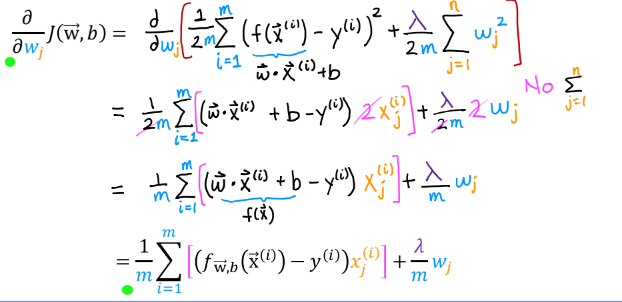 ∂/∂w_j J(w⃗, b) = d/dw_j [ 1/2m Σ_{i=1}^{m} (f(x⃗^(i)) − y^(i))² + λ/2m Σ_{j=1}^{n} w_j² ]
w⃗·x⃗^(i)+b
No Σ_{j=1}^{n}
= 1/2m Σ_{i=1}^{m} [(w⃗·x⃗^(i) + b − y^(i)) 2 x_j^(i)] + λ/2m 2 w_j
= 1/m Σ_{i=1}^{m} [(w⃗·x⃗^(i) + b − y^(i)) x_j^(i)] + λ/m w_j
f(x⃗)
= 1/m Σ_{i=1}^{m} [(f_{w⃗,b}(x⃗^(i)) − y^(i)) x_j^(i)] + λ/m w_j